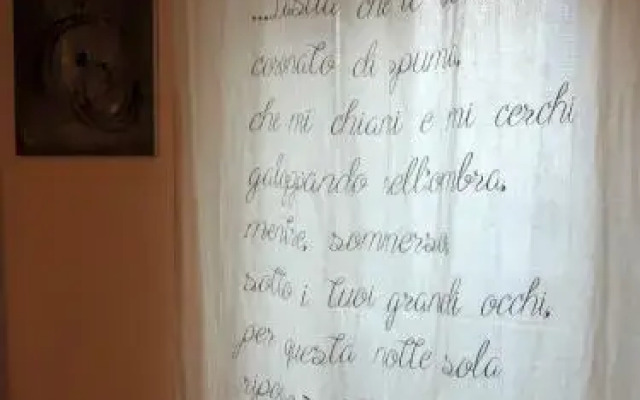 che
coronato di spuma,
che mi chiami e mi cerchi
galoppando nell'ombra,
mentre, sommerso
sotto i tuoi grandi occhi,
per questa notte sola